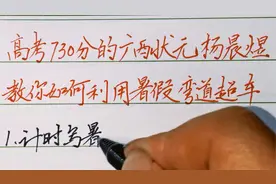 高考730分的广西状元杨晨煜
教你如何利用暑假弯道超车
1.计时写暑